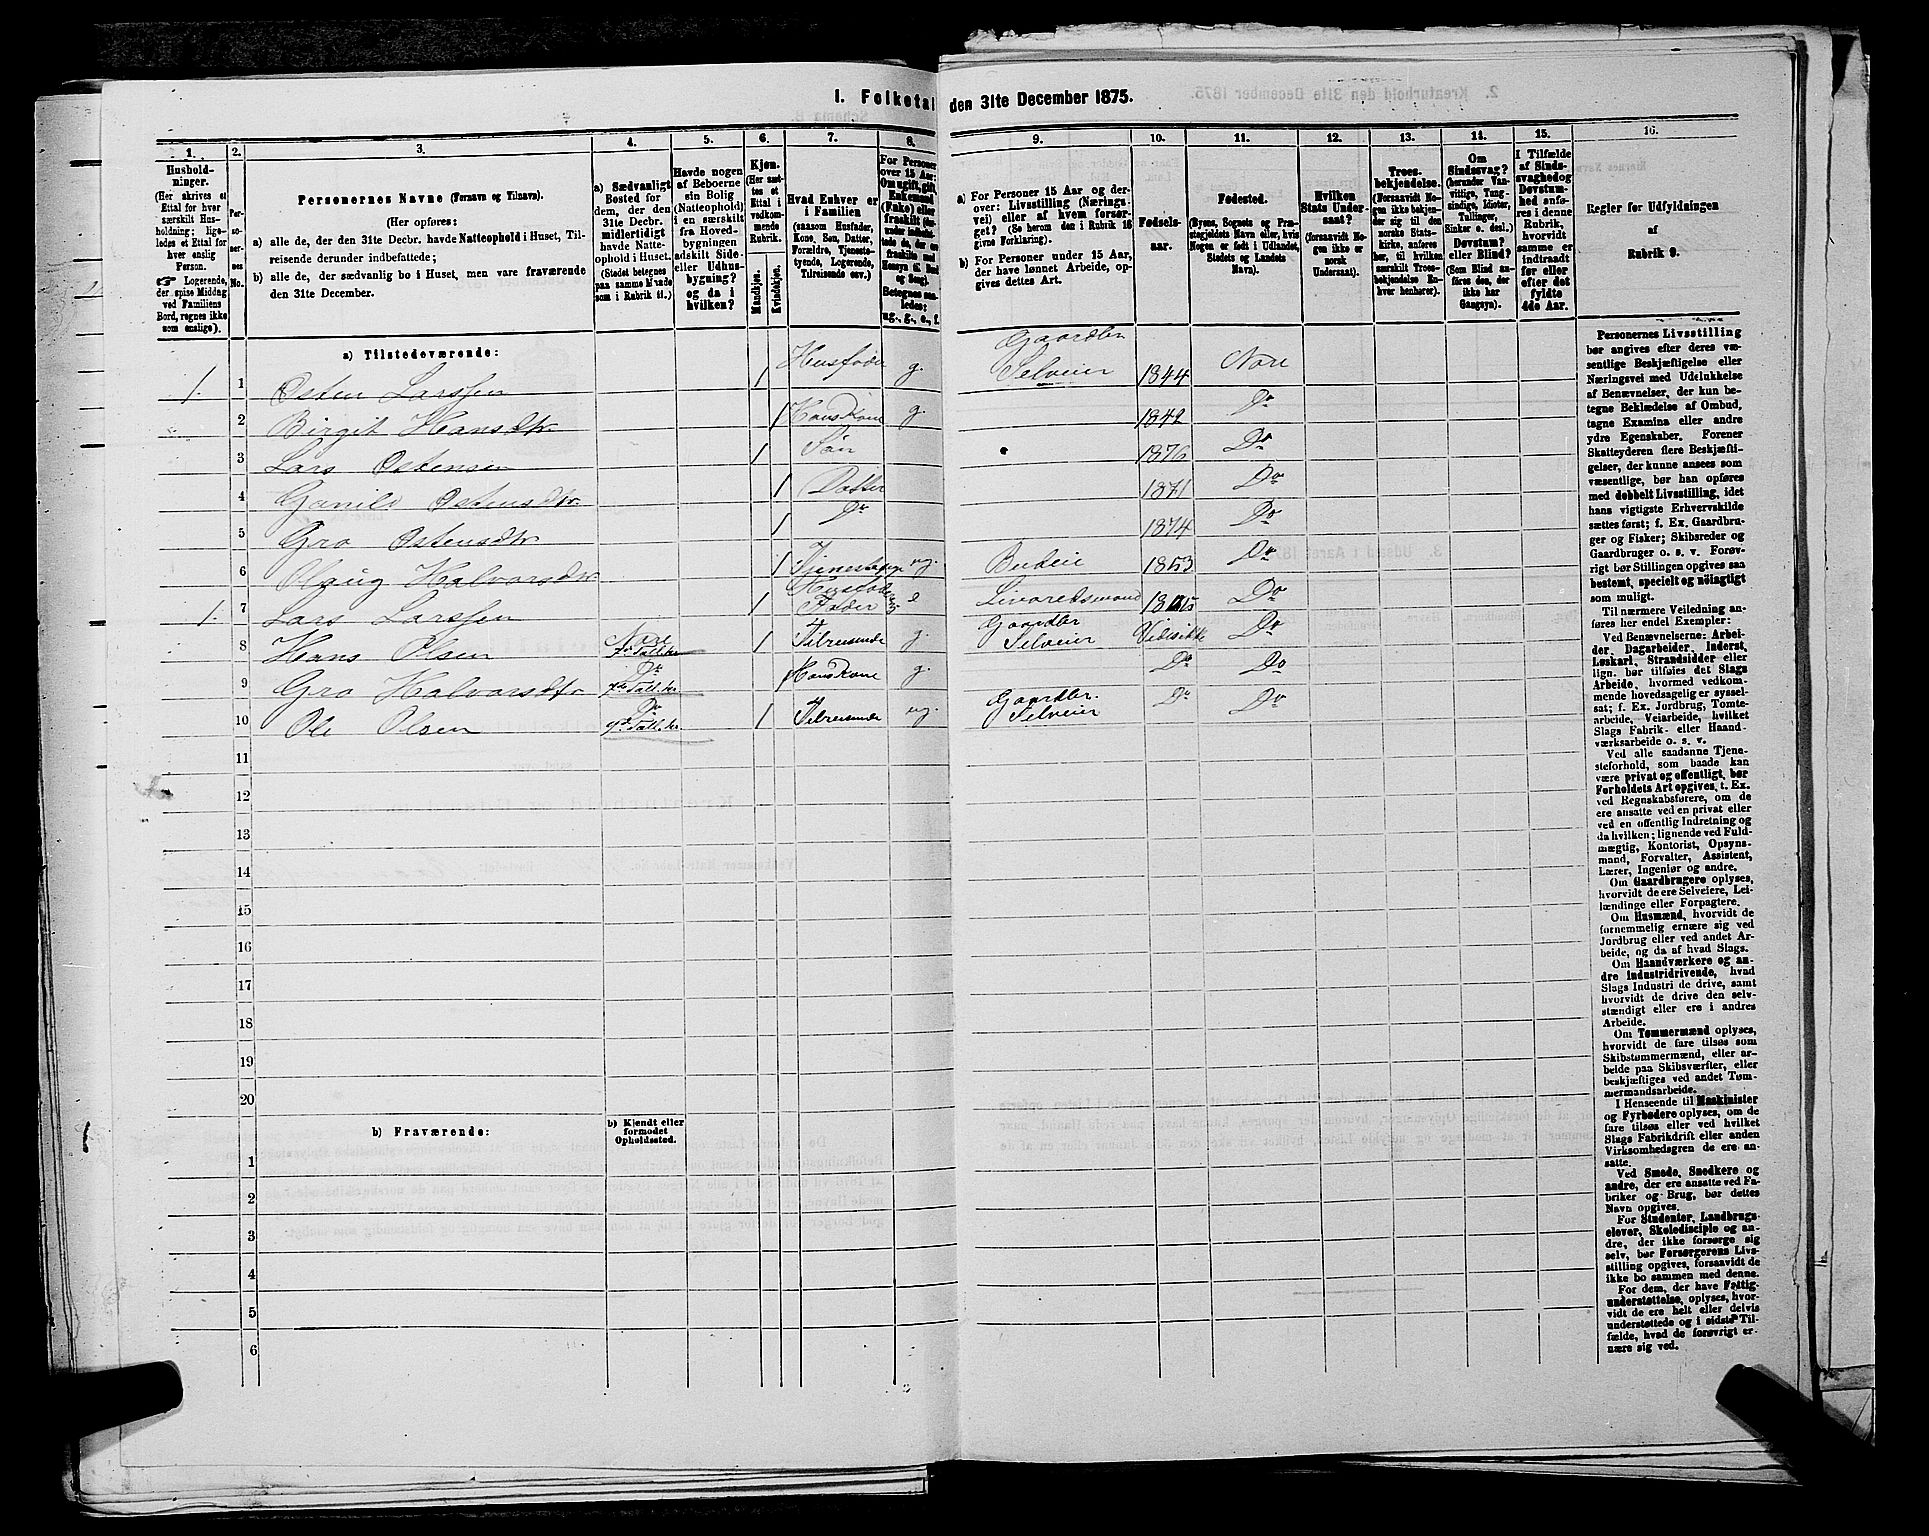 I. Folketal
den 31te December 1875.
1.
2.
3.
4.
5.
6.
7.
8.
9.
10.
11.
12.
13.
14.
15.
16.
Hushold-
ninger.
(Her skrives et
Ettal for hver
særskilt Hus-
holdning; lige-
ledes et Ettal for
hver enslig
Person.
☛ Logerende,
der spise Middag
ved Familiens
Bord, regnes ikke
som enslige).
Personernes Navne (Fornavn og Tilnavn).
(Her opføres:
a) alle de, der den 31te Decbr. havde Natteophold i Huset, Til-
reisende derunder indbefattede;
b) alle de, der sædvanlig bo i Huset, men vare fraværende
den 31te December.
a) Sædvanligt
Bosted for
dem, der den
31te Decbr.
midlertidigt
havde Natte-
ophold i Huset.
(Stedet betegnes
paa samme Maade
som i Rubrik 11.)
Havde nogen
af Beboerne
sin Bolig
(Natteophold)
i en særskilt
fra Hoved-
bygningen
adskilt Side-
eller Udhus-
bygning?
og da i
hvilken?
Kjøn.
(Her sæt-
tes et
Ettal i
vedkom-
mende
Rubrik.
Mandkjøn.
Kvindekjøn.
Hvad Enhver er
i Familien
(saasom Husfader,
Kone, Søn, Datter,
Forældre, Tjeneste-
tyende, Logerende,
Tilreisende osv.)
For Personer
over 15 Aar:
Om ugift, gift,
Enkemand
(Enke) eller
fraskilt
Betegnes saa-
ledes:
ug., g., e., f.
a) For Personer 15 Aar og der-
over: Livsstilling (Nærings-
vei) eller af hvem forsør-
get? (Se herom den i Rubrik 16
givne Forklaring).
b) For Personer under 15 Aar,
der have lønnet Arbeide, op-
gives dettes Art.
Fødsels-
aar.
Fødested.
(Byens, Sognets og Præ-
stegjeldets Navn eller, hvis
Nogen er født i Udlandet,
Stedets og Landets
Navn).
Hvilken
Stats Under-
saat?
(forsaavidt No-
gen ikke er
norsk
Undersaat).
Troes-
bekjendelse.
(Forsaavidt No-
gen ikke bekjen-
der sig til den
norske Stats-
kirke, anføres
her, til hvilken
særskilt Troes-
bekjendelse En-
hver henhører).
Om
Sindssvag?
(herunder Van-
vittige, Tung-
sindige, Idioter,
Tullinger,
Sinker o. desl.)
Døvstum?
eller Blind?
(Som Blind an-
føres den, der
ikke har
Gangsyn).
I Tilfælde
af Sinds-
svaghed og
Døvstum-
hed anfø-
res i denne
Rubrik,
hvorvidt
samme er
indtraadt
før eller
efter det
fyldte
4de Aar.
Regler for Udfyldningen
af
Rubrik 9.
a) Tilstedeværende:
1. 1 Osten Larssen 1 Husfader g. Gaardbr Selveier 1844 Nore
2 Birgit Hansdtr 1 Hans Kone g. 1842 Do
3 Lars Ostensen 1 Søn 1876 Do
4 Gunild Ostensdtr 1 Datter 1871 Do
5 Gro Ostensdtr 1 Do 1874 Do
6 Olaug Halvorsdtr 1 ug. Budeie 1853 Do
1. 7 Lars Larssen 1 Husfaders Fader e Do
8 Hans Olsen Nore 1 Tilreisende g. Gaardbr Selveier Do
9 Gro Halvorsdtr Do 1 Hans Kone g. Do Do
10 Ole Olsen Do 1 Tilreisende ug. Gaardbr. Selveier Do Do
11
12
13
14
15
16
17
18
19
20
b) Fraværende:
b) Kjendt eller
formodet
Opholdssted.
1
2
3
4
5
6
Personernes Livsstilling
bør angives efter deres væ-
sentlige Beskjæftigelse eller
Næringsvei med Udelukkelse
af Benævnelser, der kun be-
tegne Beklædelse af Ombud,
tagne Examina eller andre
ydre Egenskaber. Forener
Skatteyderen flere Beskjæfti-
gelser, der kunne ansees som
væsentlige, bør han opføres
med dobbelt Livsstilling, idet
hans vigtigste Erhvervskilde
sættes først; f. Ex. Gaardbru-
ger og Fisker; Skibsreder og
Gaardbruger o. s. v. Forøv-
rigt bør Stillingen opgives saa
bestemt, specielt og nöiagtigt
som muligt.
Til nærmere Veiledning an-
føres her endel Exempler:
Ved Benævnelserne: Arbei-
der, Dagarbeider, Inderst,
Løskarl, Strandsidder eller
lign. bør tilføies det Slags
Arbeide, hvormed vedkom-
mende hovedsagelig er syssel-
sat; f. Ex. Jordbrug, Tomte-
arbeide, Veiarbeide, hvilket
Slags Fabrik- eller Haand-
værksarbeide o. s. v.
Ved alle saadanne Tjene-
steforhold, som baade kan
være privat og offentligt, bør
Forholdets Art opgives, t. Ex.
ved Regnskabsførere, om de
ere ansatte ved en privat eller
ved en offentlig Indretning og
da hvilken; lignende ved Fuld-
mægtig, Kontorist, Opsyns-
mand, Forvalter, Assistent,
Lærer, Ingeniør og andre.
Om Gaardbrugere oplyses,
hvorvidt de ere Selveiere, Lei-
lændinge eller Forpagtere.
Om Husmænd, hvorvidt de
fornemmelig ernære sig ved
Jordbrug eller ved andet Ar-
beide, og da af hvad Slags.
Om Haandværkere og an-
dre industridrivende, hvad
Slags Industri de drive, samt
hvorvidt de drive den selv-
stændigt eller ere i andres
Arbeide.
Om Tømmermænd oplyses,
hvorvidt de fare tilsøs som
Skibstømmermænd, eller ar-
beide paa Skibsværfter, eller
beskjæftiges ved andet Tøm-
mermandsarbeide.
I Henseende til Maskinister
og Fyrbødere oplyses, om de
fare tilsøs eller ved hvilket
Slags Fabrikdrift eller anden
Virksomhedsgren de ere an-
satte.
Ved Smede, Snedkere og
andre, der ere ansatte ved Fa-
briker og Brug, bør dettes
Navn opgives.
For Studenter, Landbrugs-
elever, Skoledisciple og an-
dre, der ikke forsørge sig
selv, bør Forsørgerens Livs-
stilling opgives, forsaavidt de
ikke bo sammen med denne.
For dem, der have Fattig-
understøttelse, oplyses, hvor-
vidt de ere helt eller delvis
understøttede og i sidste Til-
fælde, hvad de forøvrigt er-
nære sig ved.